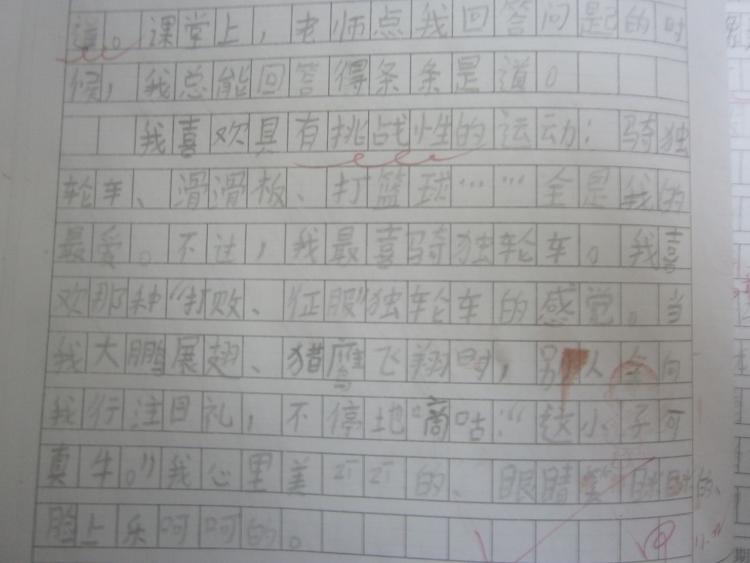 道。课堂上，老师点我回答问题的时
候，我总能回答得条条是道。
我喜欢具有挑战性的运动：骑独
轮车、滑滑板、打篮球……全是我的
最爱。不过，我最喜骑独轮车。我喜
欢那种“打败、征服”独轮车的感觉。当
我大鹏展翅、猎鹰飞翔时，别人会向
我行注目礼，不停地嘀咕：“这小子可
真牛。”我心里美滋滋的、眼睛笑眯眯的、
脸上乐呵呵的。